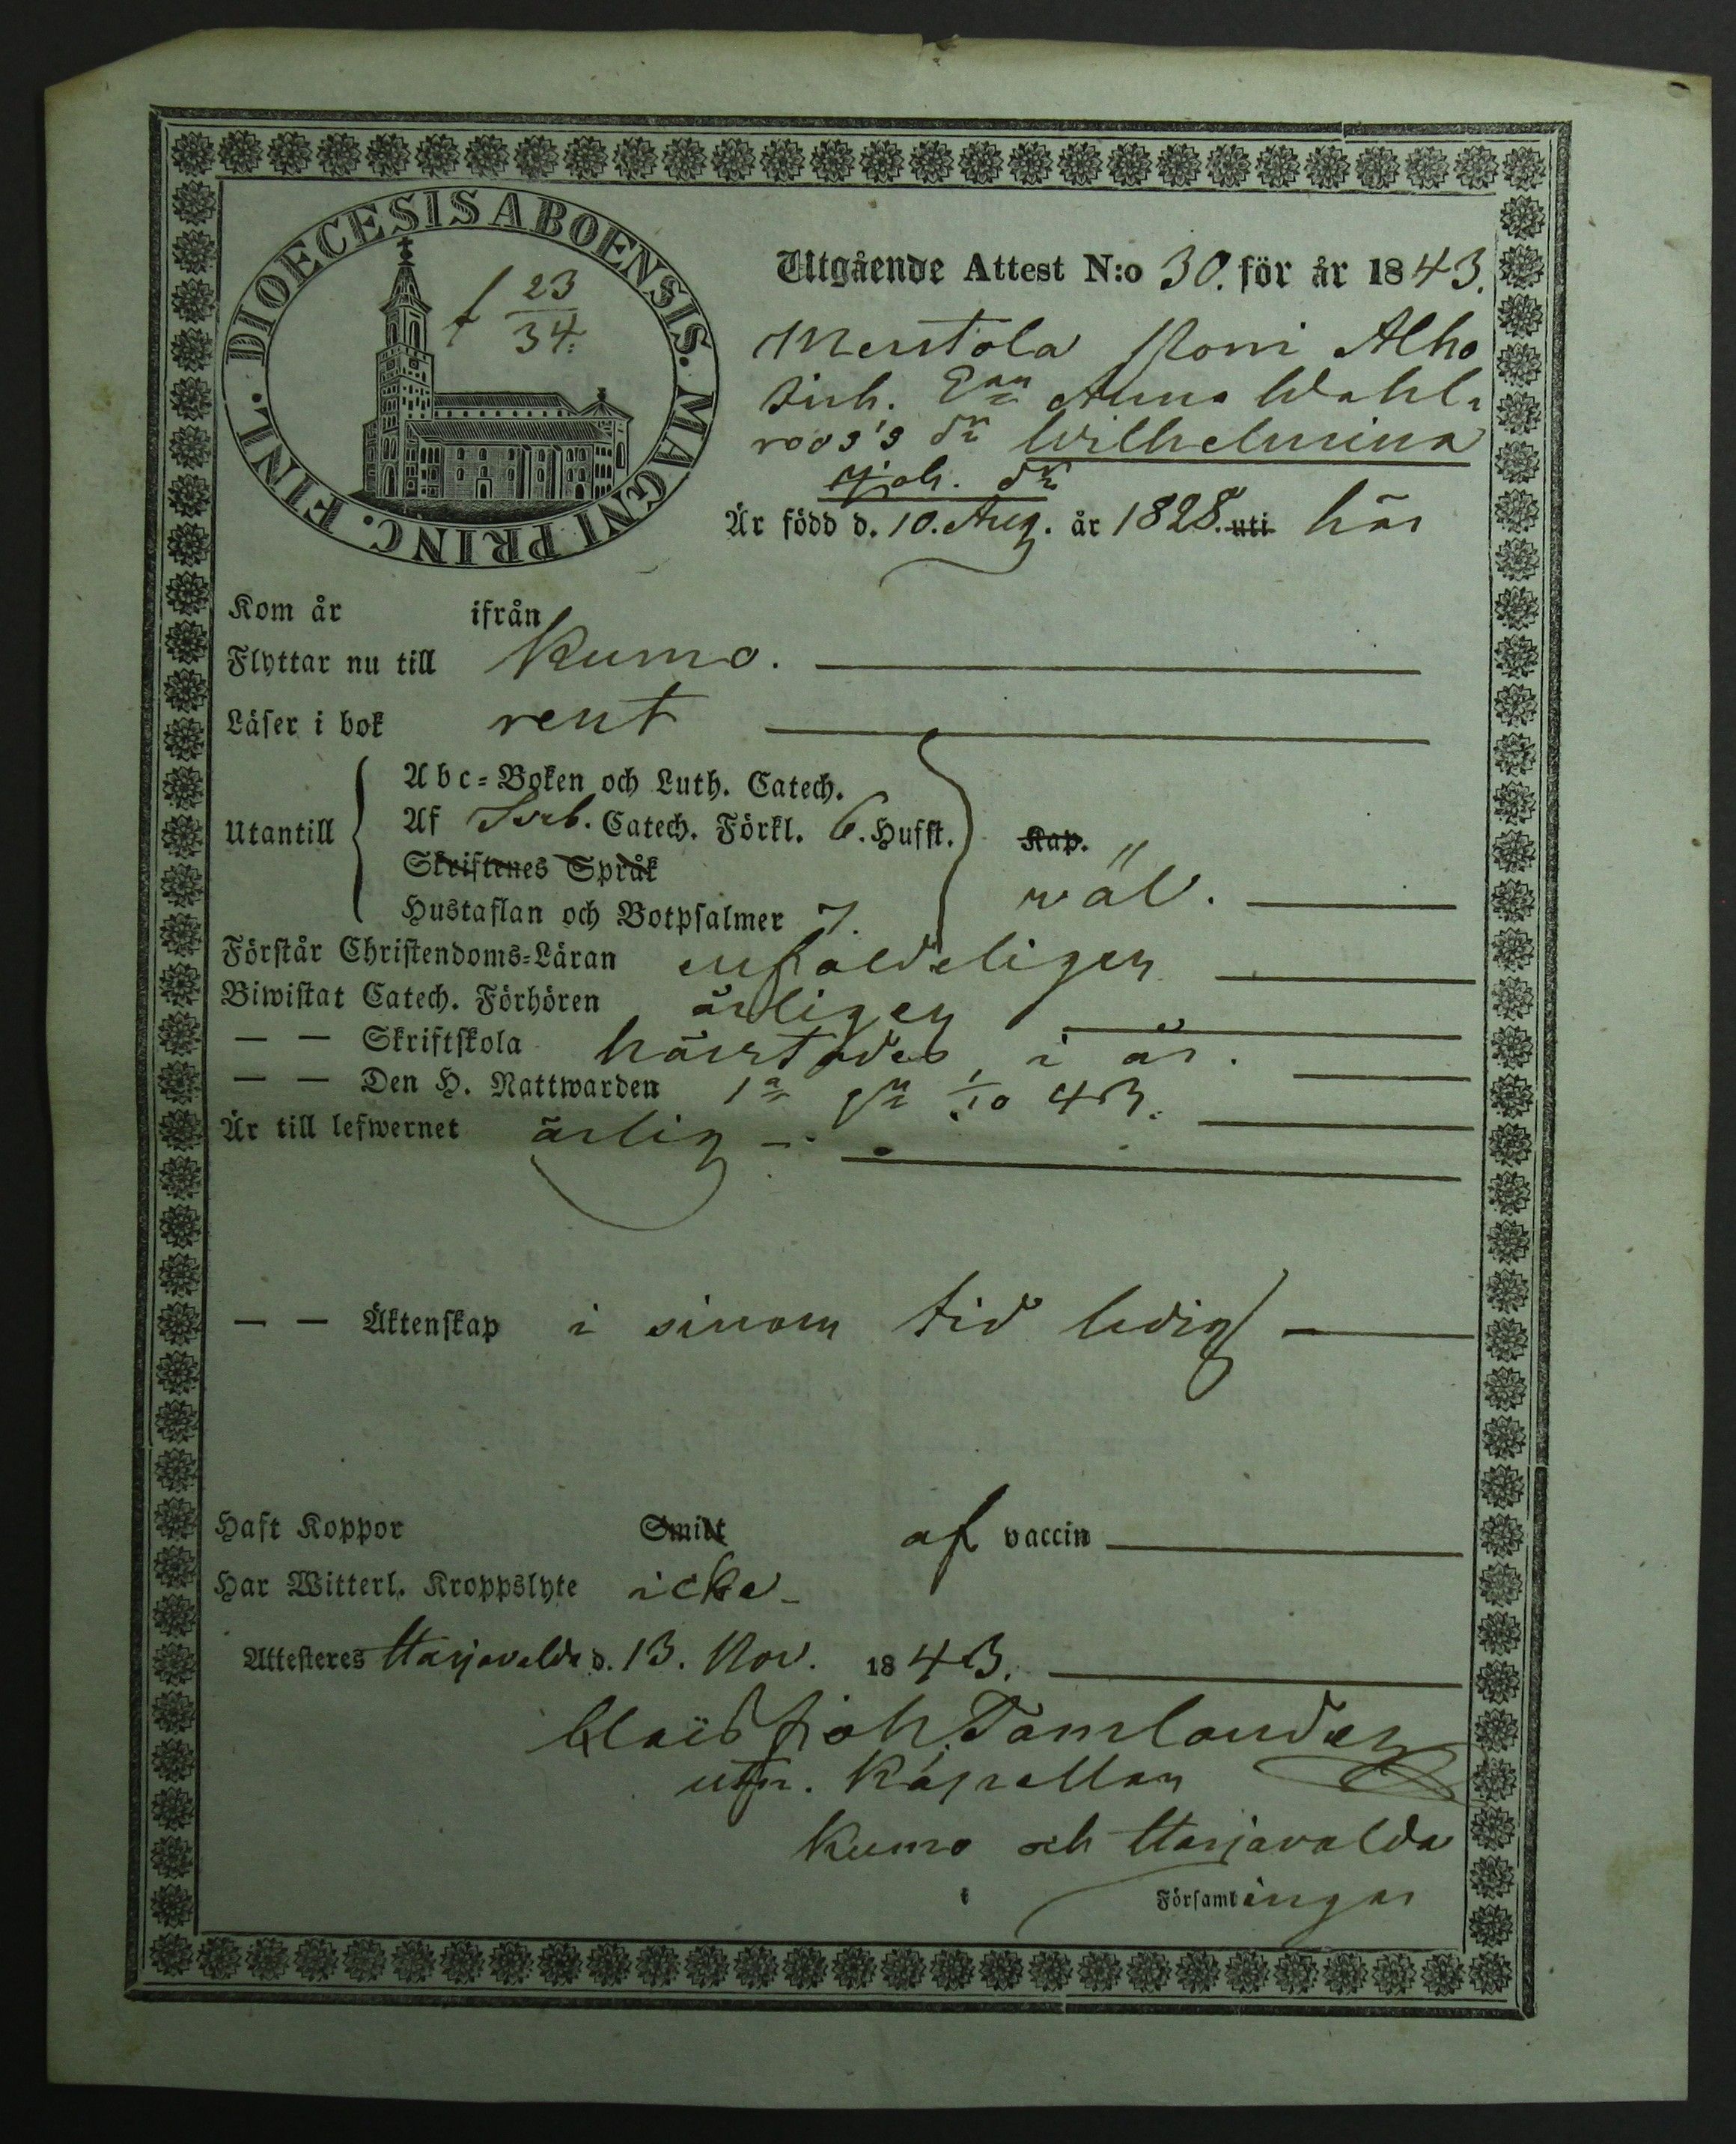 DIOECESIS ABOENSIS. MAGNI PRINC. FINL.
f 23
34.
Utgående Attest N:o 30. för år 1843.
Mertola Alho
Anna Wahl-
roos's dr Wilhelmina
Joh. dr
Är född d. 10. Aug. år 1828. uti här
Kom år ifrån
Flyttar nu till Kumo.
Läser i bok rent
Utantill
Abc-Boken och Luth. Catech.
Af Svb. Catech. Förkl. 6. Hufst.
Skriftenes Språk
Hustaflan och Botpsalmer 7.
Kap.
wäl.
Förstår Christendoms-Läran enfaldeligen
Biwistat Catech. Förhören årligen
— — Skriftskola härstädes i år.
— — Den H. Nattwarden 1a gn 1/10 43.
Är till lefwernet ärlig
— — Äktenskap i sinom tid ledig
Haft Koppor Smitt af vaccin
Har Witterl. Kroppslyte icke
Attesteres Harjavalda d. 13. Nov. 1843.
Joh. Tamlander
Kapellan
Kumo och Harjavalda
Församlingar